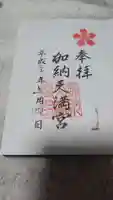 奉拝
加納天満宮
平成三十年
月
日